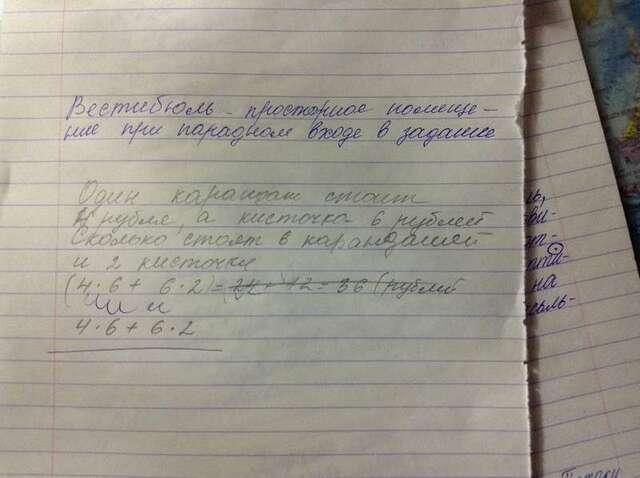 Вестибюль - просторное помеще-
ние при парадном входе в задание
Один карандаш стоит
4 рубля, а кисточка 6 рублей
Сколько стоят 6 карандашей
и 2 кисточки
(4·6+6·2)=24+12=36 (рублей
или
4·6+6·2
ь,
ви-
от-
на